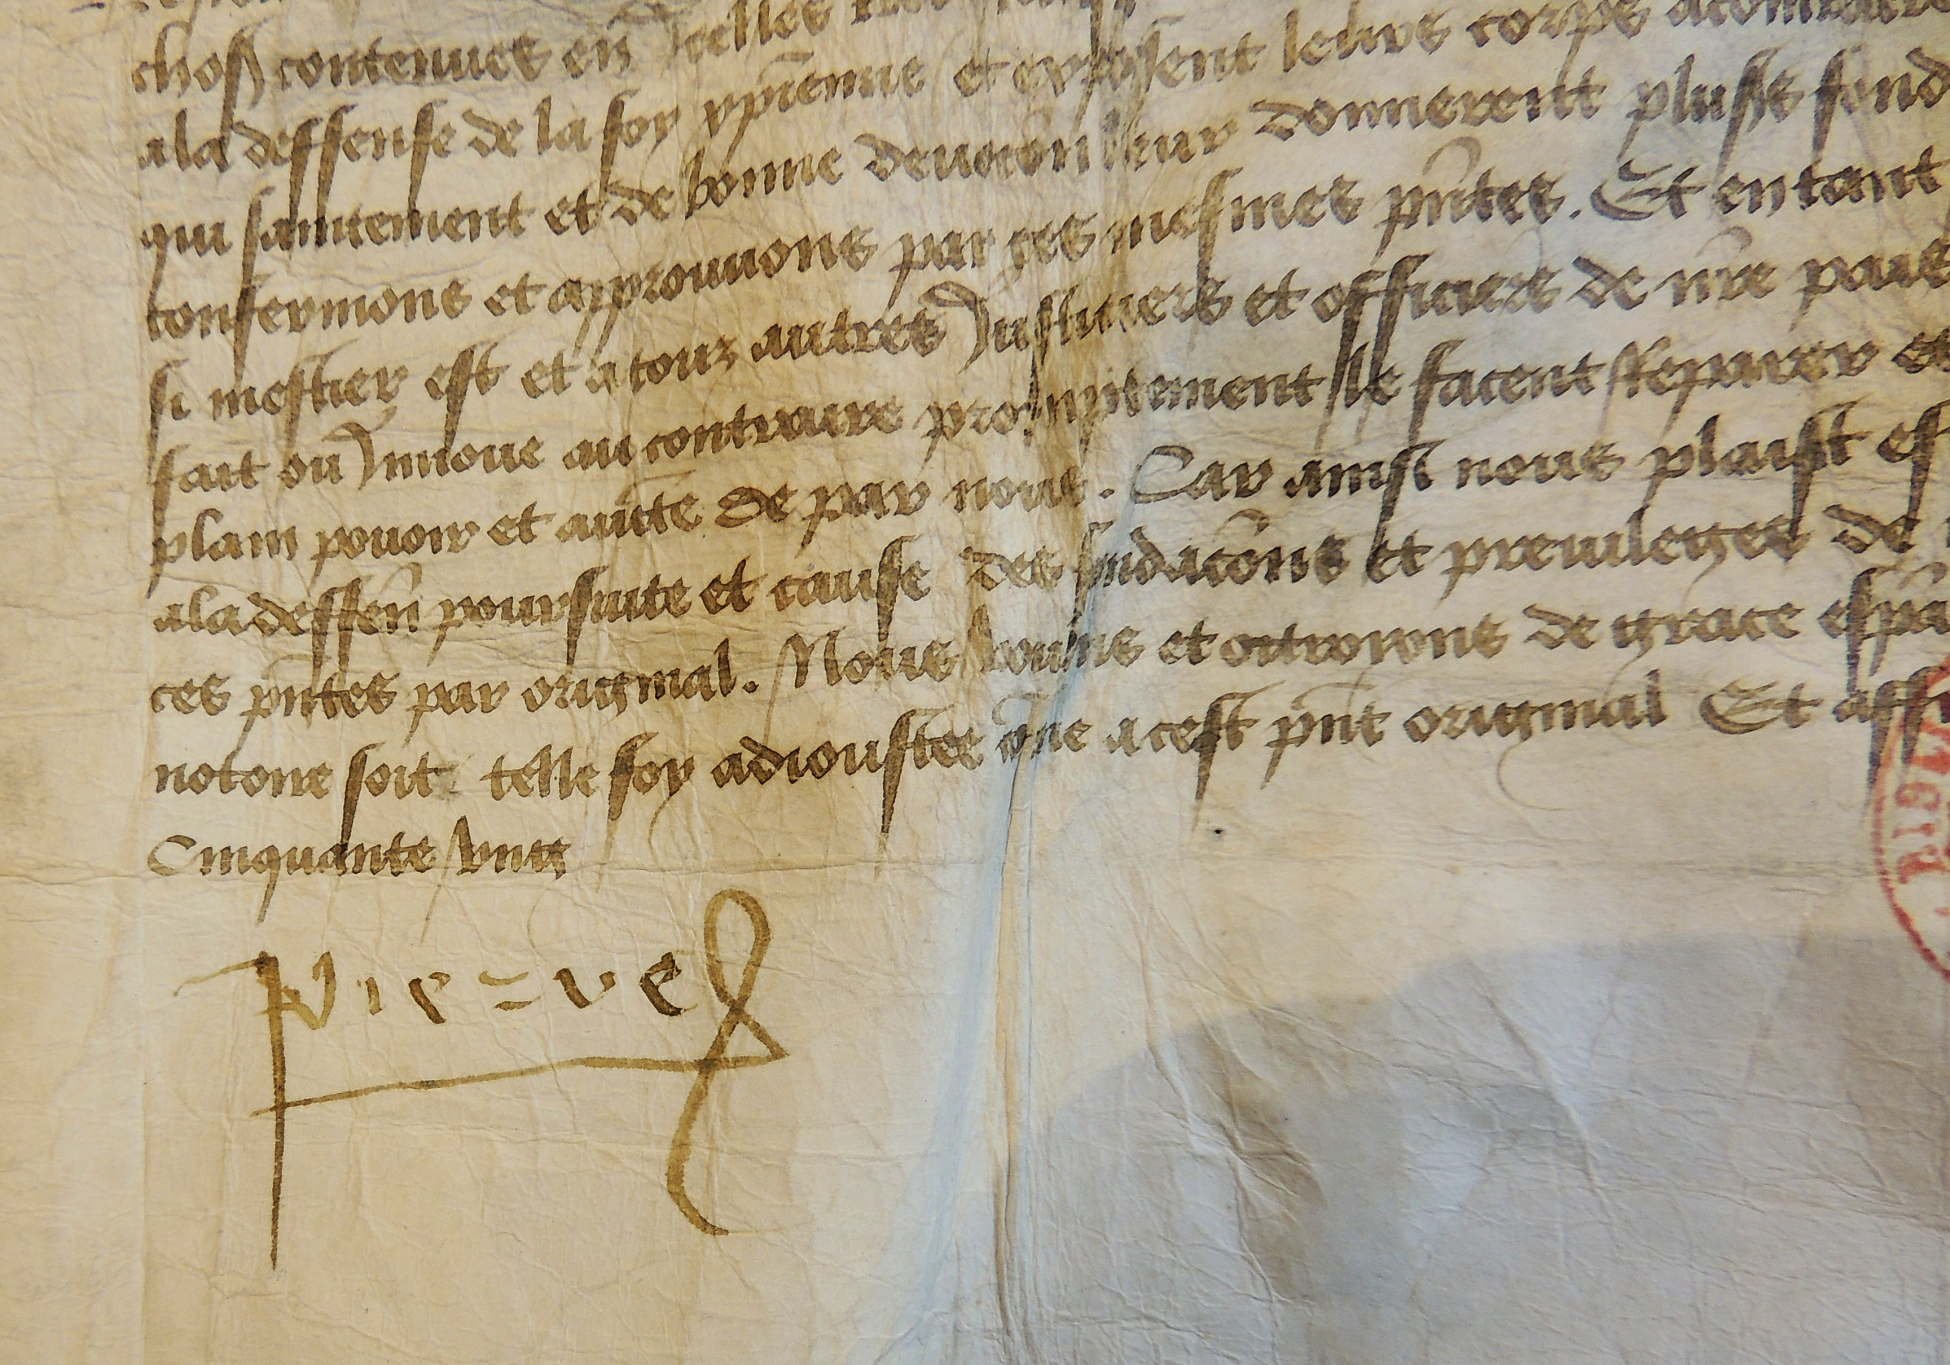 chos contenues en Icelles
ala deffense de la foy xpienne et exposent leurs corps acombatre
qui sainctement et de bonne deuocion leur donnerent pluss fond
confermons et approuuons par ces mesmes pntes. Et en tant
si mestier est et a touz autres Justiciers et officiers de nre pais
fait ou Innoue au contraire promptement ilz le facent Reparer et
plain pouoir et aucte de par nous. Car ainsi nous plaist es
ala deffen poursuite et cause des fundacons et preuileges de
ces pntes par original. Nous voulons et octroyons de grace esp
notoire soit telle foy adioustee cme a cest pnt original Et aff
Cinquante huit
Pierre